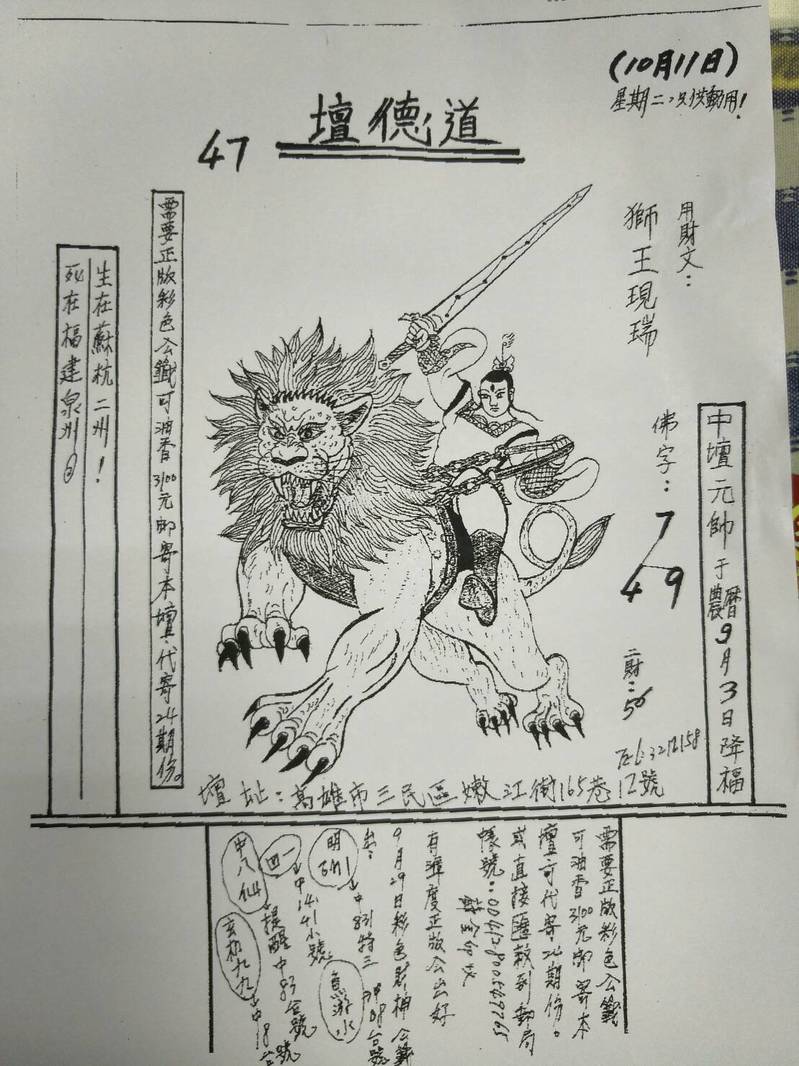 (10月11日)
星期二、只供動用!
道德壇
47
用財文：
獅王現瑞
佛字：
7
4 9
二財：56
中壇元帥于農曆9月3日降福
需要正版彩色公籤可油香3100元郵寄本壇代寄24期份。
生在蘇杭二州！
死在福建泉州。
壇址：高雄市三民區嫩江街165巷12號
需要正版彩色公籤
可油香3100元郵寄本
壇可代寄24期份。
或直接匯款到郵局
帳號：
有準度正版公出好
9月29日彩色財神公籤
出：
明
四一
中1441小號
中八仙
提醒中83台號
魚游水
玄初九九
中18台號